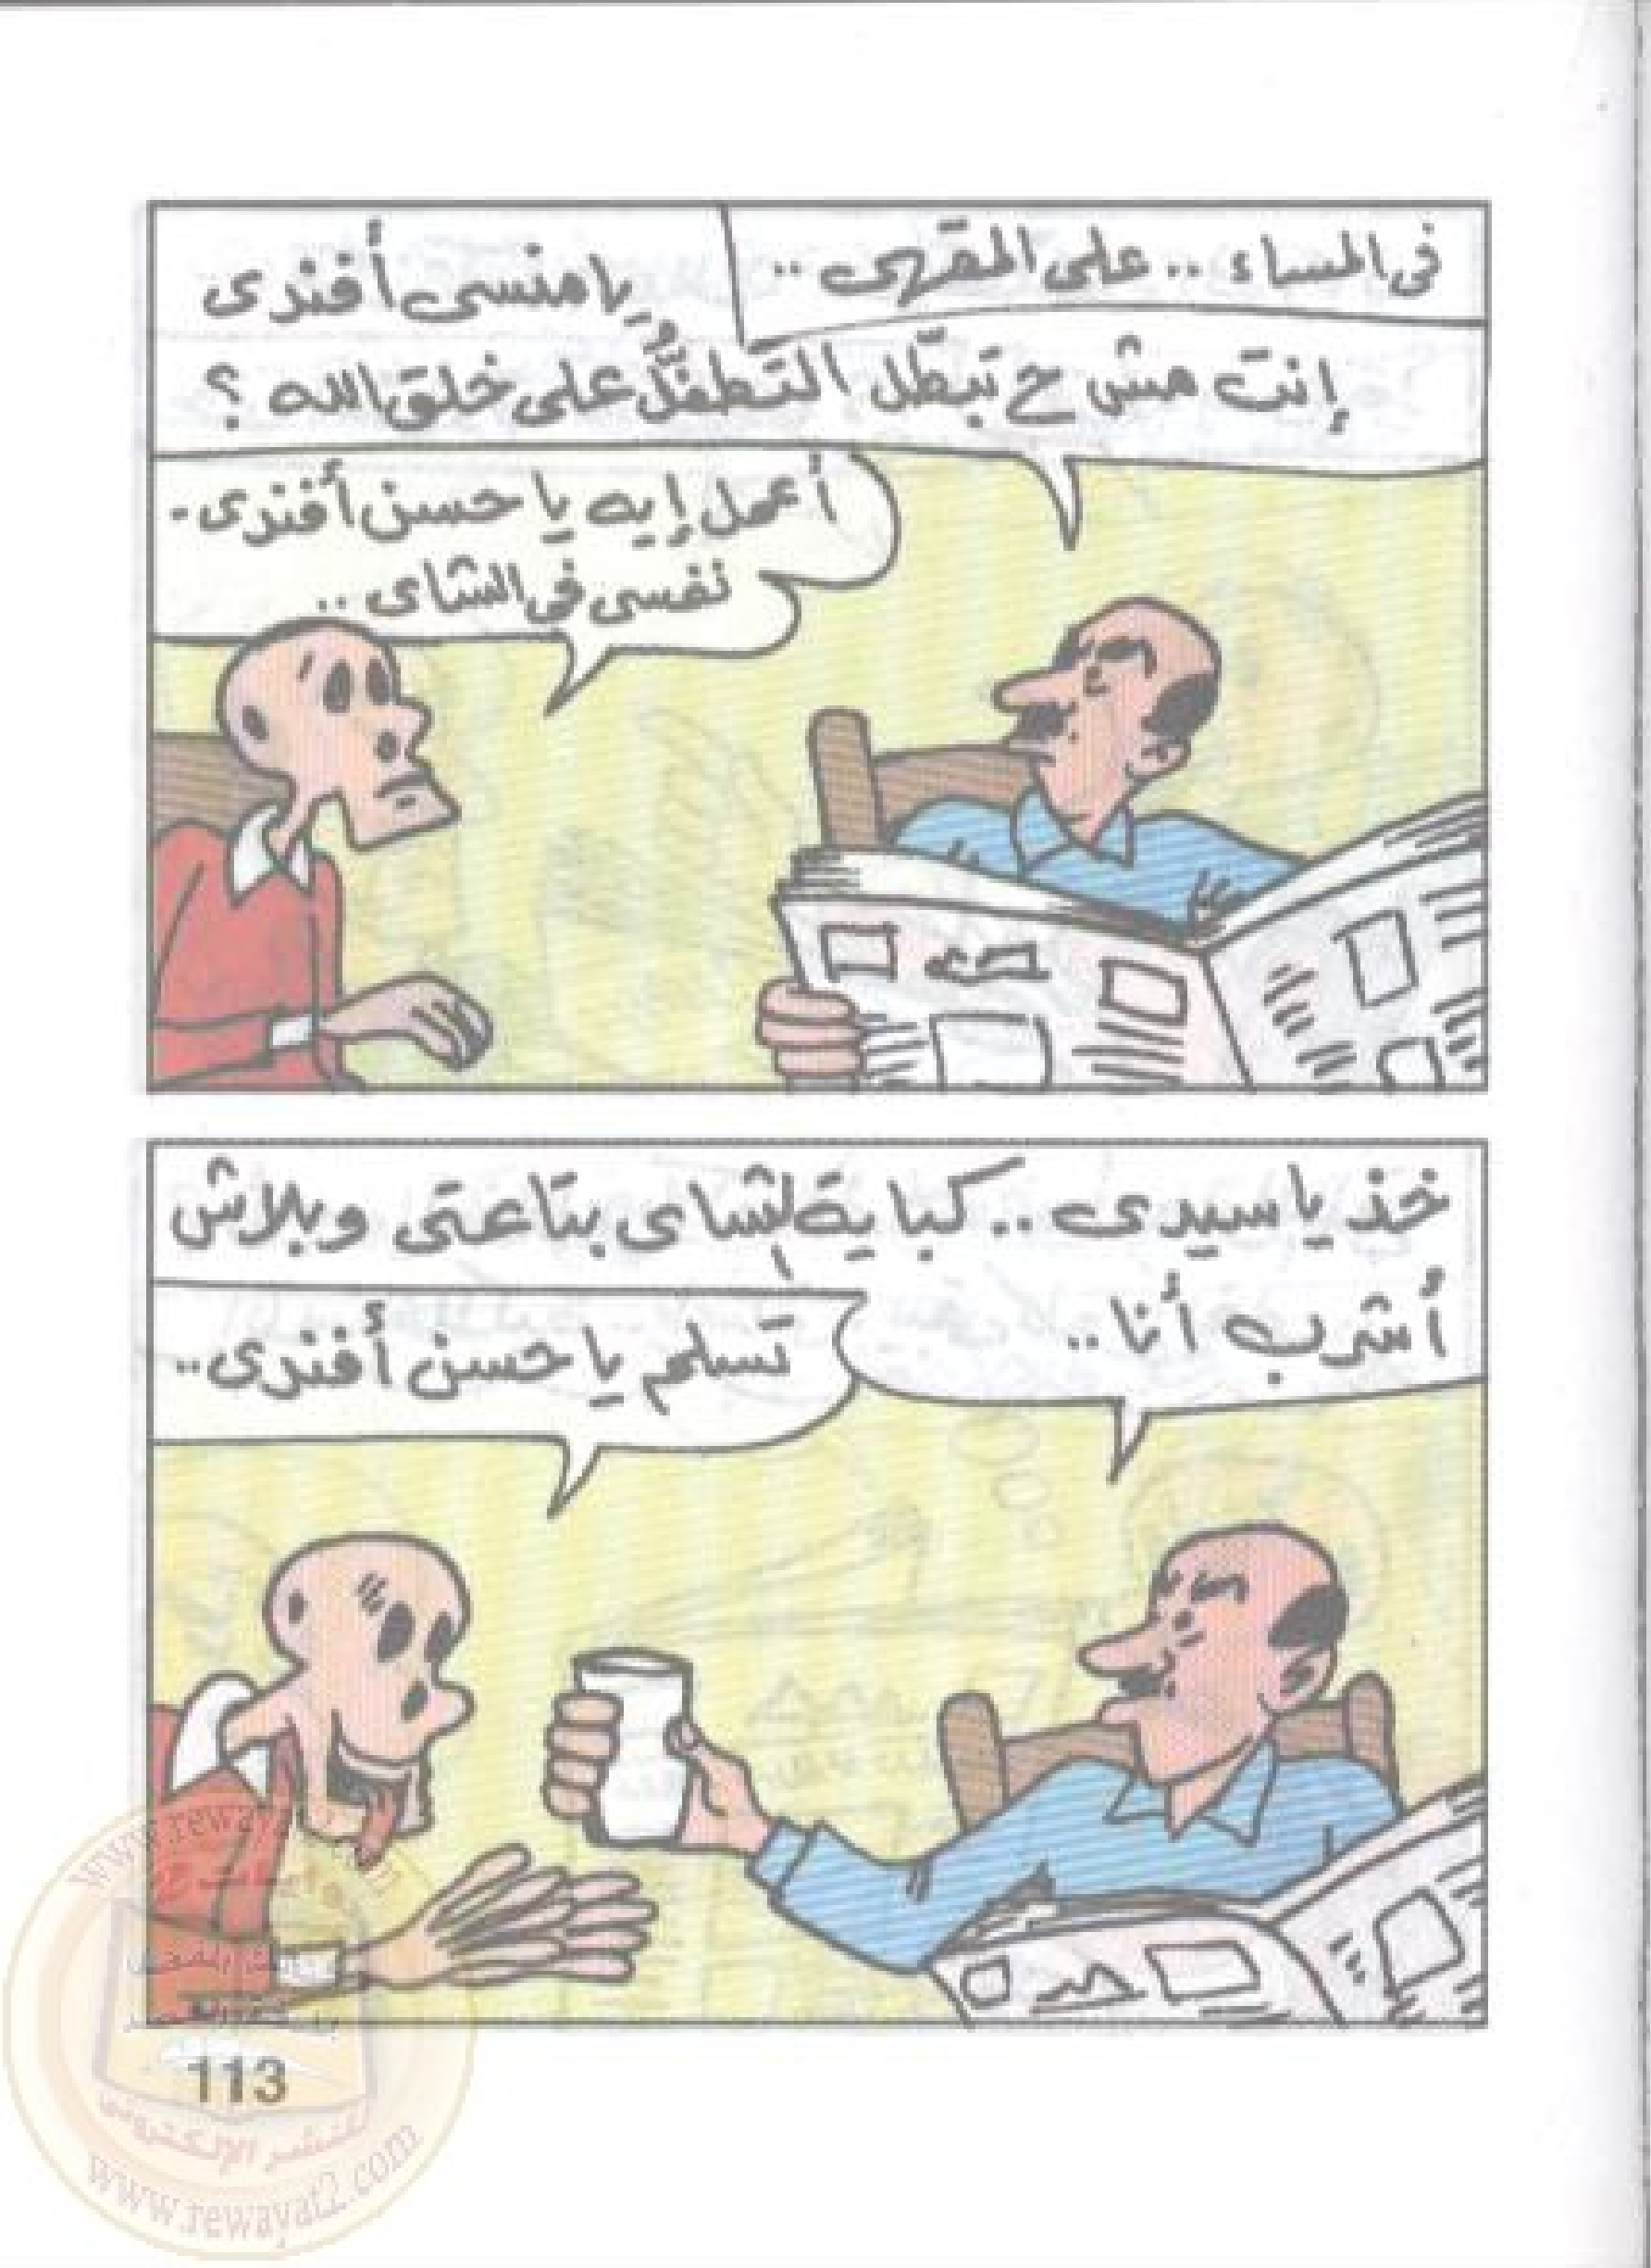 فى المساء .. على المقهى ..
يا منسى أفندى
إنت مش ح تبطّل التَّطفُّل على خلق الله ؟
أعمل إيه يا حسن أفندى -
نفسى فى الشاى ..
خذ يا سيدى .. كباية الشاى بتاعتى وبلاش
أشرب أنا ..
تسلم يا حسن أفندى ..
113
للنشر الإلكترونى
www.rewayat2.com